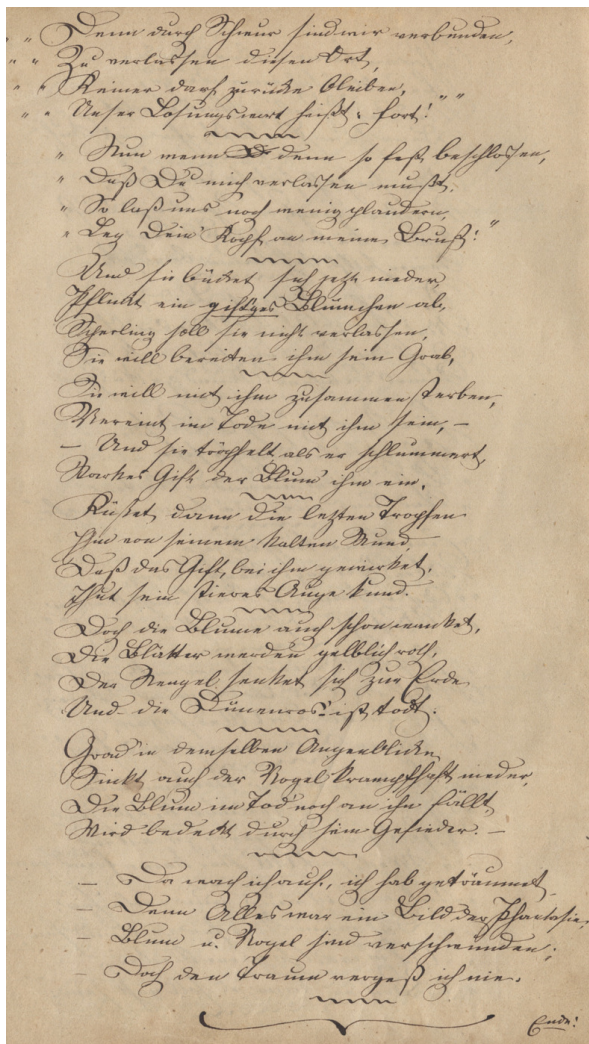 „ Denn durch Schwur sind wir verbunden,
„ „ Zu verlassen diesen Ort,
„ „ Keiner darf zurücke bleiben,
„ „ Unser Losungswort heißt: fort!" "
„ Nun wenn denn so fest beschlossen,
„ Daß Du mich verlassen mußt,
„ So laß uns noch wenig plaudern,
„ Leg Dein' Kopf an meine Brust!"
Und sie bücket sich jetzt nieder,
Pflückt ein giftges Blümchen ab,
Scherling soll sie nicht verlassen,
Sie will bereiten ihm sein Grab,
Sie will mit ihm zusammen sterben,
Vereint im Tode mit ihm sein, –
– Und sie tröpfelt als er schlummert,
Starkes Gift der Blum' ihm ein.
Küßet dann die lezten Tropfen
Ihm von seinem kalten Mund,
Daß das Gift, bei ihm gewirket,
Thut sein stieres Auge kund.
Doch die Blume auch schon wanket,
Die Blätter werden gelblich roth,
Der Stengel senket sich zur Erde
Und die Dünenros' ist todt.
Grad' in demselben Augenblicke
Sinkt auch der Vogel krampfhaft nieder,
Die Blum im Tod noch an ihn fällt,
Wird bedeckt durch sein Gefieder. –
– Da wach ich auf, ich hab geträumet
– Denn Alles war ein Bild der Phantasie,
– Blum u. Vogel sind verschwunden;
– Doch den Traum vergeß ich nie.
Ende!